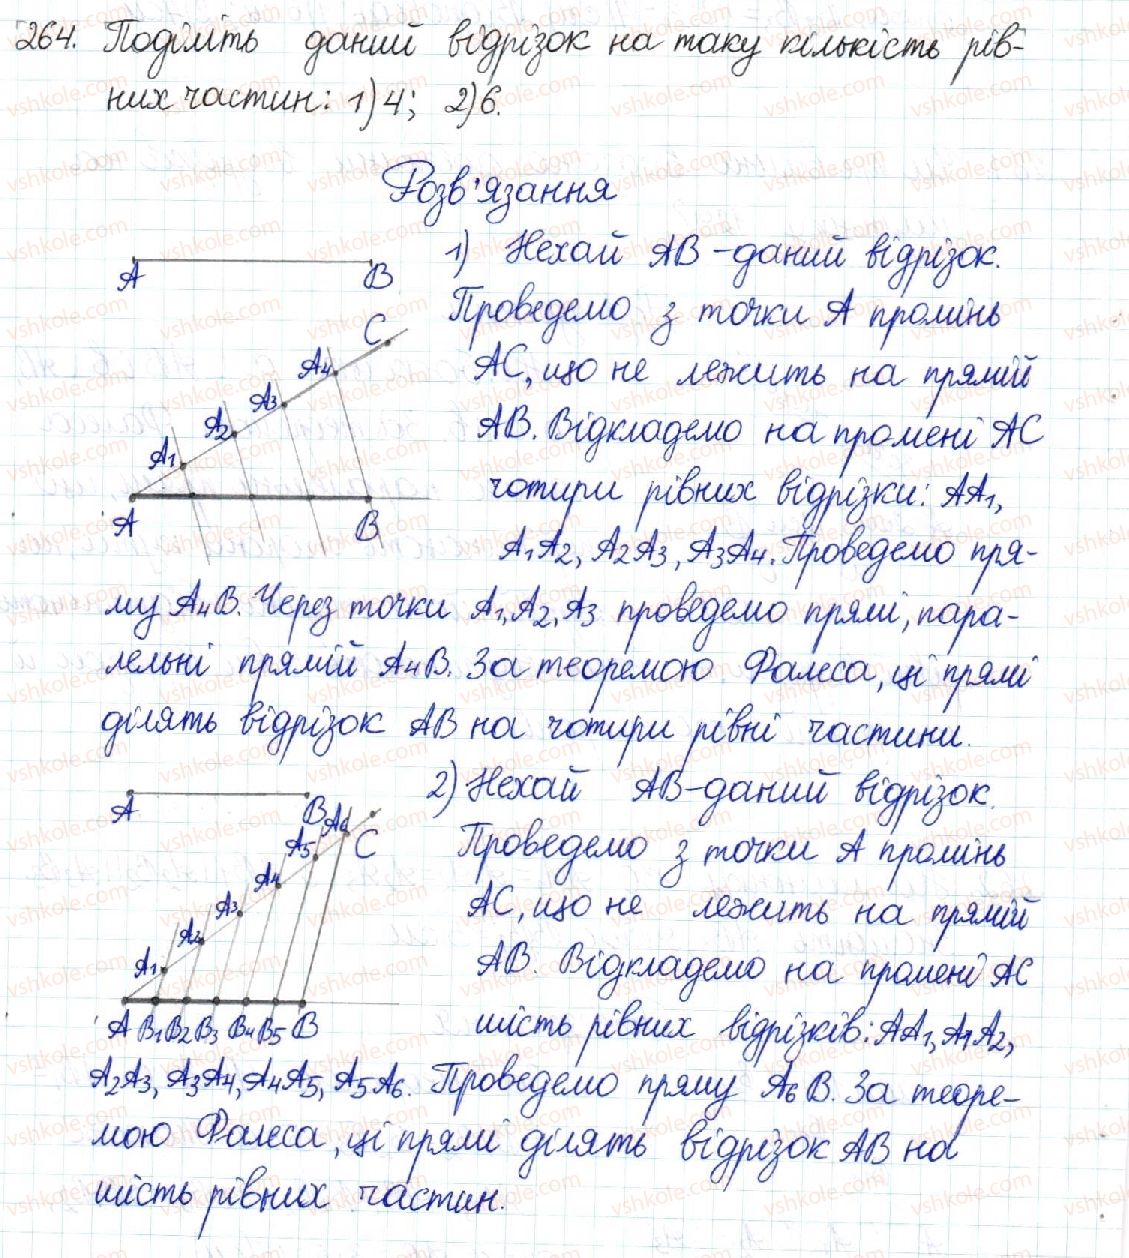 264. Поділіть даний відрізок на таку кількість рів-
них частин: 1) 4; 2) 6.
Розв'язання
A B
1) Нехай AB – даний відрізок.
Проведемо з точки A промінь
AC, що не лежить на прямій
AB. Відкладемо на промені AC
чотири рівних відрізки: AA₁,
A₁A₂, A₂A₃, A₃A₄. Проведемо пря-
C
A₄
A₃
A₂
A₁
A B
му A₄B. Через точки A₁, A₂, A₃ проведемо прямі, пара-
лельні прямій A₄B. За теоремою Фалеса, ці прямі
ділять відрізок AB на чотири рівні частини.
A B
2) Нехай AB – даний відрізок.
Проведемо з точки A промінь
AC, що не лежить на прямій
AB. Відкладемо на промені AC
шість рівних відрізків: AA₁, A₁A₂,
A₆
C
A₅
A₄
A₃
A₂
A₁
A B₁ B₂ B₃ B₄ B₅ B
A₂A₃, A₃A₄, A₄A₅, A₅A₆. Проведемо пряму A₆B. За теоре-
мою Фалеса, ці прямі ділять відрізок AB на
шість рівних частин.
vshkole.com